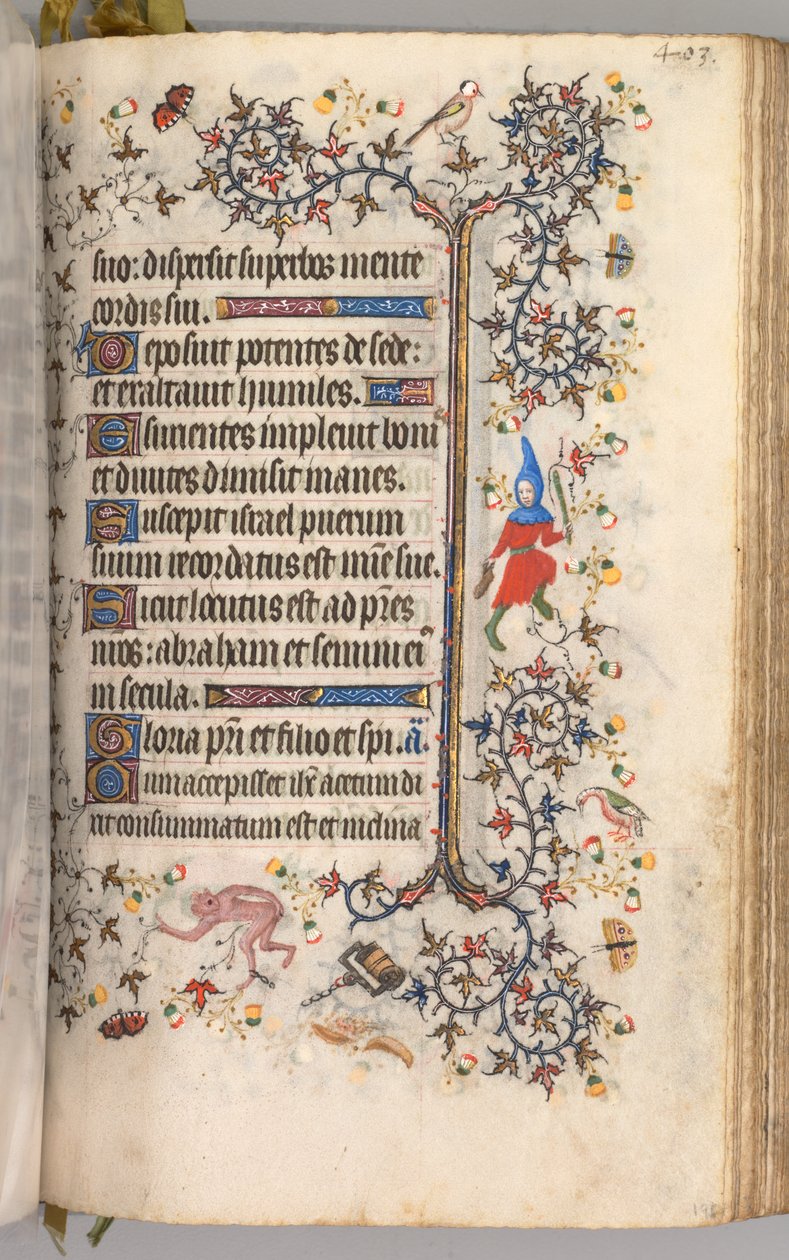 403.
suo: dispersit superbos mente
cordis sui.
Deposuit potentes de sede:
et exaltauit humiles.
Esurientes impleuit boni
et diuites dimisit inanes.
Suscepit israel puerum
suum recordatus est mie sue.
Sicut locutus est ad pres
nros: abraham et semini ei
in secula.
Gloria pri et filio et spi. a.
Cum accepisset ihc acetum di
xit consummatum est et inclina